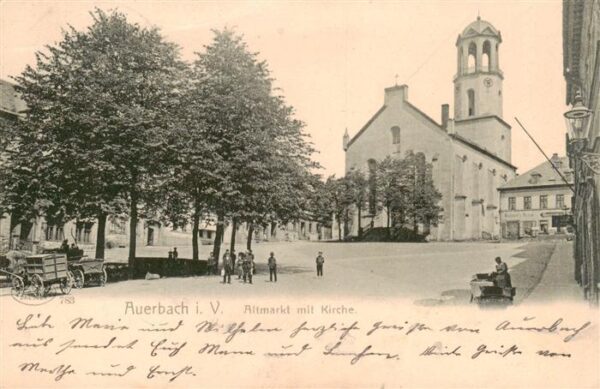 783
Auerbach i. V. Altmarkt mit Kirche.
Liebe Marie und Wilhelm herzlich Grüße von Auerbach
aus sendet Euch Mama und Viele Grüße von
Martha und Ernst.